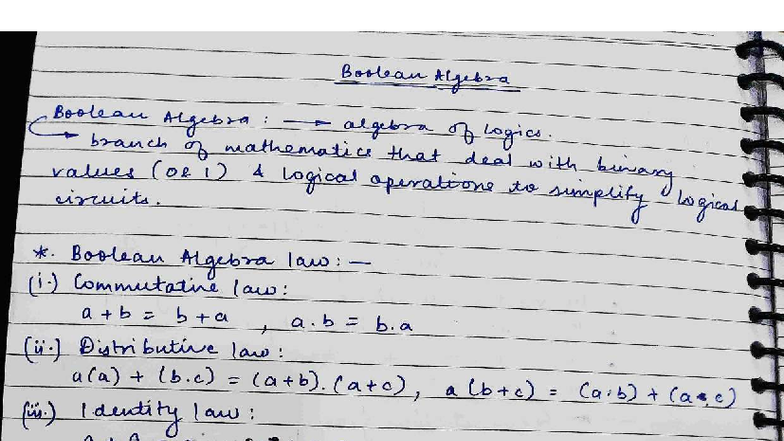 Boolean Algebra
Boolean Algebra: → algebra of logics.
→ branch of mathematics that deal with binary
values (0 & 1) & logical operations to simplify logical
circuits.
*. Boolean Algebra law: —
(i.) Commutative law:
a + b = b + a , a . b = b . a
(ii.) Distributive law:
a(a) + (b.c) = (a+b).(a+c), a(b+c) = (a.b) + (a.c)
(iii.) Identity law: